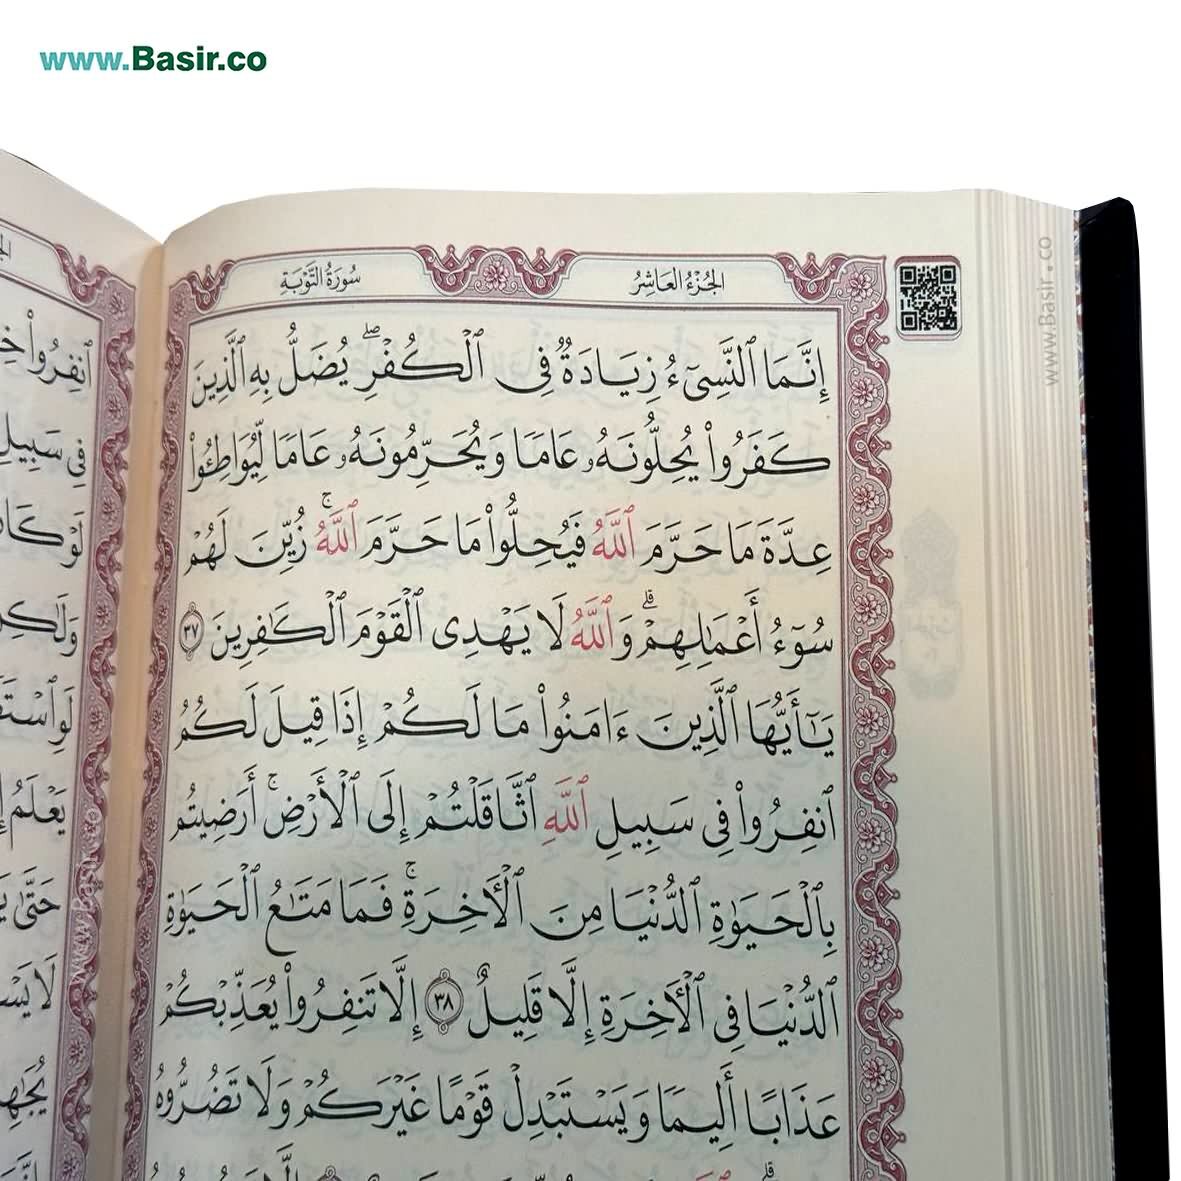 www.Basir.co
سُورَةُ التَّوْبَةِ
الجُزْءُ العَاشِرُ
إِنَّمَا ٱلنَّسِىٓءُ زِيَادَةٌ فِى ٱلْكُفْرِ ۖ يُضَلُّ بِهِ ٱلَّذِينَ
كَفَرُوا۟ يُحِلُّونَهُۥ عَامًا وَيُحَرِّمُونَهُۥ عَامًا لِّيُوَاطِـُٔوا۟
عِدَّةَ مَا حَرَّمَ ٱللَّهُ فَيُحِلُّوا۟ مَا حَرَّمَ ٱللَّهُ ۚ زُيِّنَ لَهُمْ
سُوٓءُ أَعْمَـٰلِهِمْ ۗ وَٱللَّهُ لَا يَهْدِى ٱلْقَوْمَ ٱلْكَـٰفِرِينَ ٣٧
يَـٰٓأَيُّهَا ٱلَّذِينَ ءَامَنُوا۟ مَا لَكُمْ إِذَا قِيلَ لَكُمُ
ٱنفِرُوا۟ فِى سَبِيلِ ٱللَّهِ ٱثَّاقَلْتُمْ إِلَى ٱلْأَرْضِ ۚ أَرَضِيتُم
بِٱلْحَيَوٰةِ ٱلدُّنْيَا مِنَ ٱلْـَٔاخِرَةِ ۚ فَمَا مَتَـٰعُ ٱلْحَيَوٰةِ
ٱلدُّنْيَا فِى ٱلْـَٔاخِرَةِ إِلَّا قَلِيلٌ ٣٨ إِلَّا تَنفِرُوا۟ يُعَذِّبْكُمْ
عَذَابًا أَلِيمًا وَيَسْتَبْدِلْ قَوْمًا غَيْرَكُمْ وَلَا تَضُرُّوهُ
ٱنفِرُوا۟
فِى سَبِيلِ
لَوْ
وَلَـٰكِنۢ
يَعْلَمُ
حَتَّىٰ
لَا
www.Basir.co